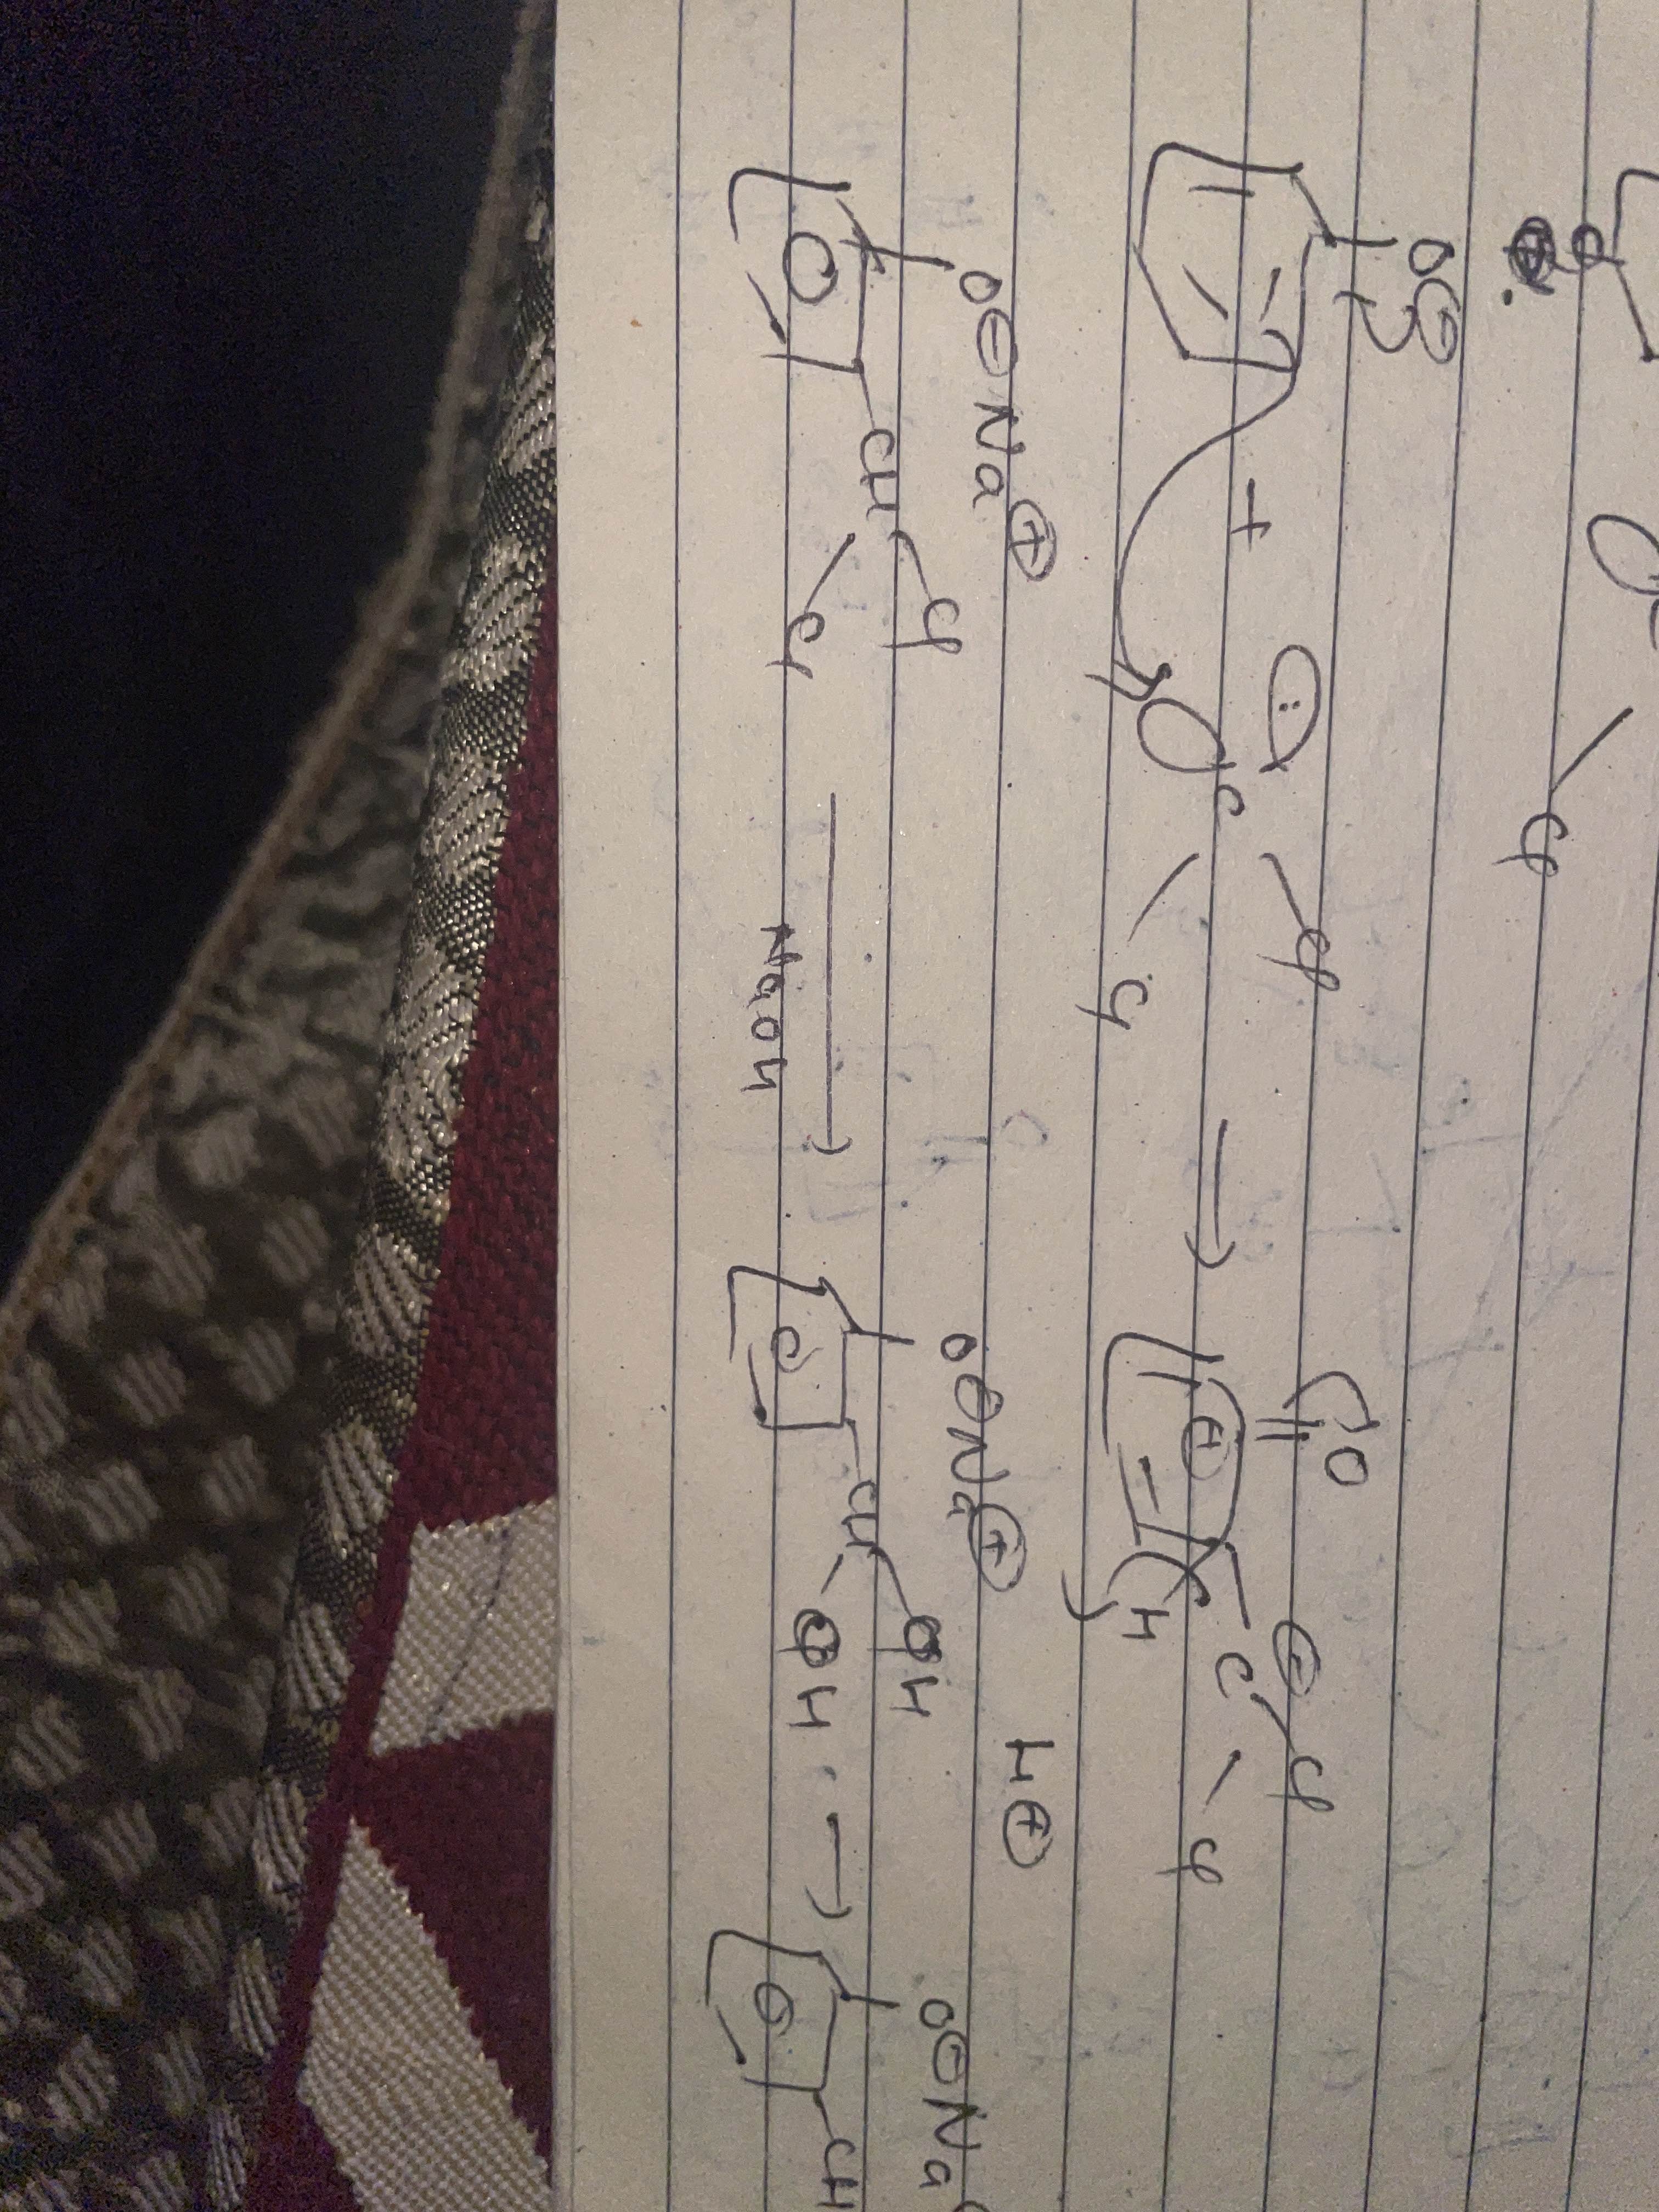 Cl
O⊖ + :C Cl Cl → O ⊕ H ⊖C Cl Cl
H⊕
O⊖Na⊕ CH Cl Cl → NaOH O⊖Na⊕ CH OH OH → O⊖Na CH